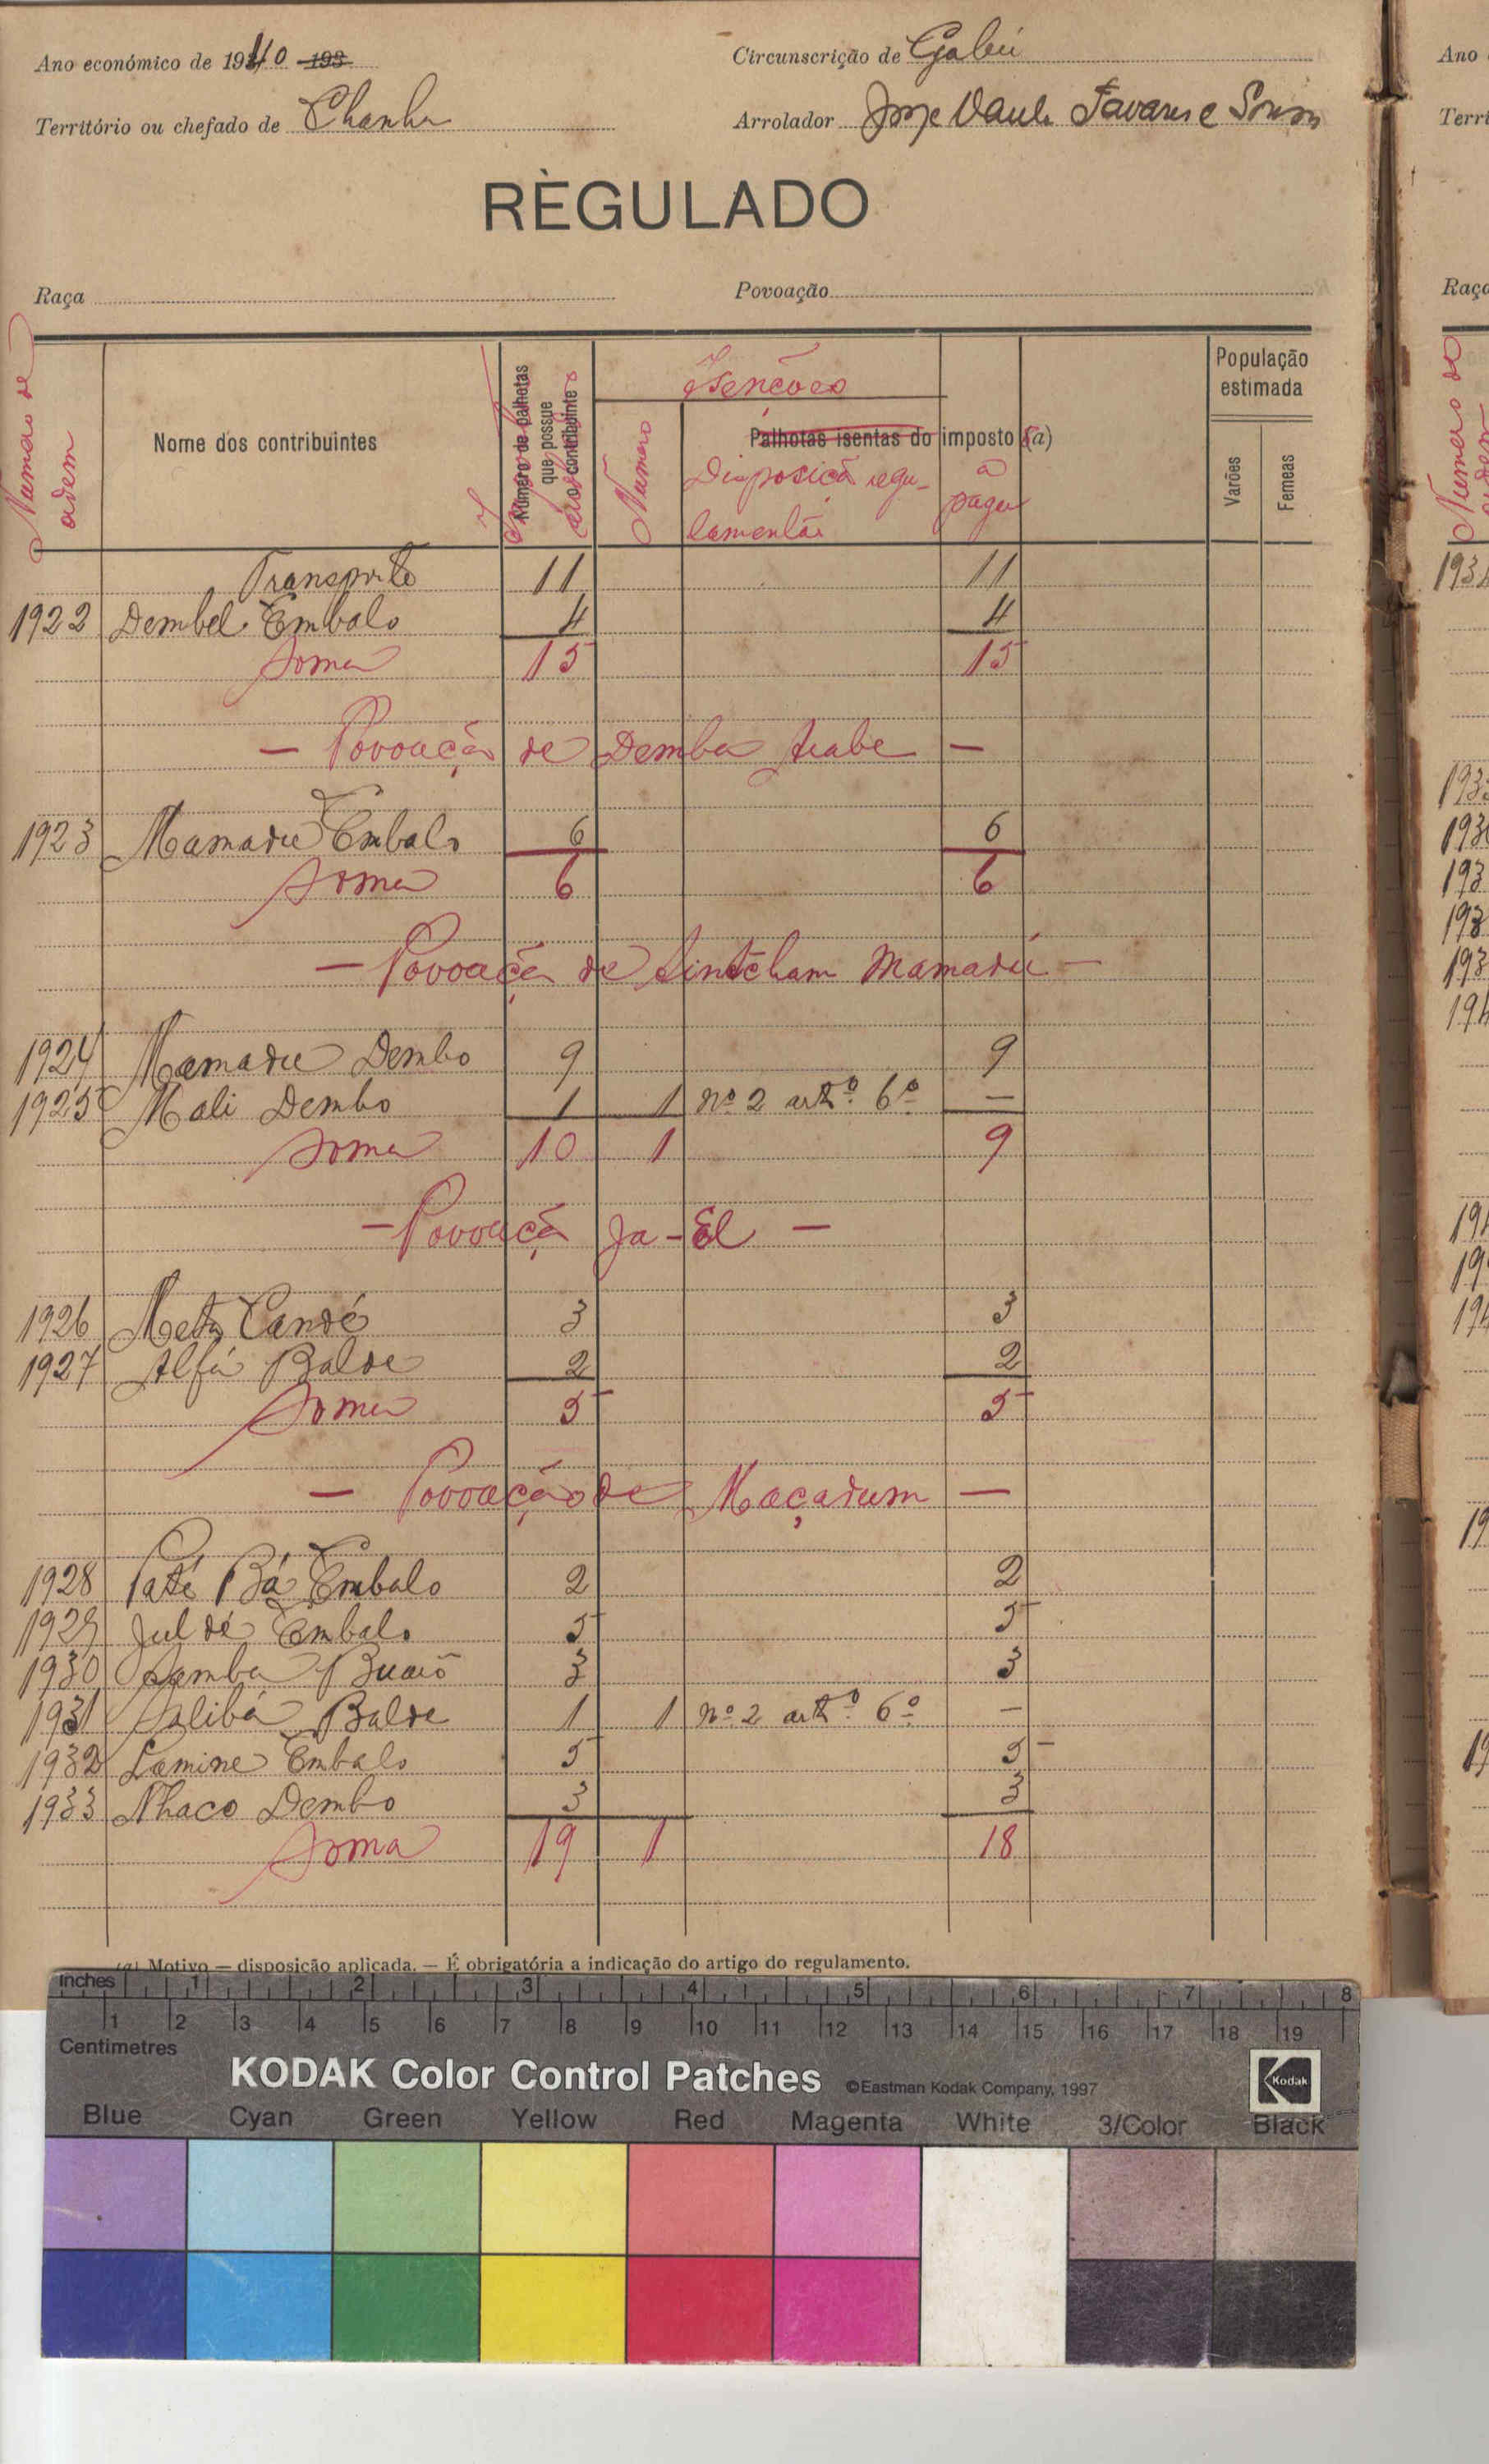 Ano económico de 1940 193
Circunscrição de Gabú
Território ou chefado de Chanha
Arrolador Tavares e Sousa
RÈGULADO
Raça
Povoação
Numero de ordem
Nome dos contribuintes
Número de palhotas que possue o contribuinte
Isenções
Numero
Palhotas isentas do imposto (a)
Disposição regulamentar
a pagar
População estimada
Varões
Femeas
Transporte 11 11
1922 Dembel Embalo 4 4
Soma 15 15
— Povoação de Demba Arabe —
1923 Mamadu Embalo 6 6
Soma 6 6
— Povoação de Sintcham Mamadú —
1924 Mamadu Dembo 9 9
1925 Mali Dembo 1 1 nº 2 artº. 6º —
Soma 10 1 9
— Povoação Ja-El —
1926 Meta Candé 3 3
1927 Alfá Balde 2 2
Soma 5 5
— Povoação de Maçadum —
1928 Paté Bá Embalo 2 2
1929 Juldé Embalo 5 5
1930 Samba Buaró 3 3
1931 Salibá Balde 1 1 nº 2 artº. 6º —
1932 Lamine Embalo 5 5
1933 Nhaco Dembo 3 3
Soma 19 1 18
(a) Motivo — disposição aplicada. — É obrigatória a indicação do artigo do regulamento.
Inches 1 2 3 4 5 6 7 8
1 2 3 4 5 6 7 8 9 10 11 12 13 14 15 16 17 18 19
Centimetres
KODAK Color Control Patches ©Eastman Kodak Company, 1997 Kodak
Blue Cyan Green Yellow Red Magenta White 3/Color Black